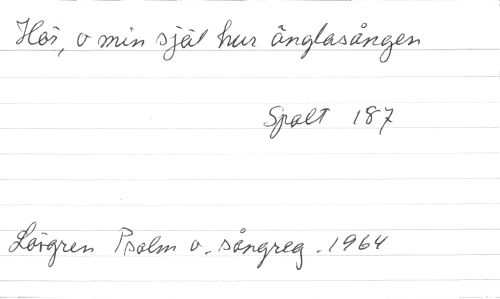 Hör, o min själ hur änglasången
Spalt 187
Lövgren Psalm o. sångreg. 1964